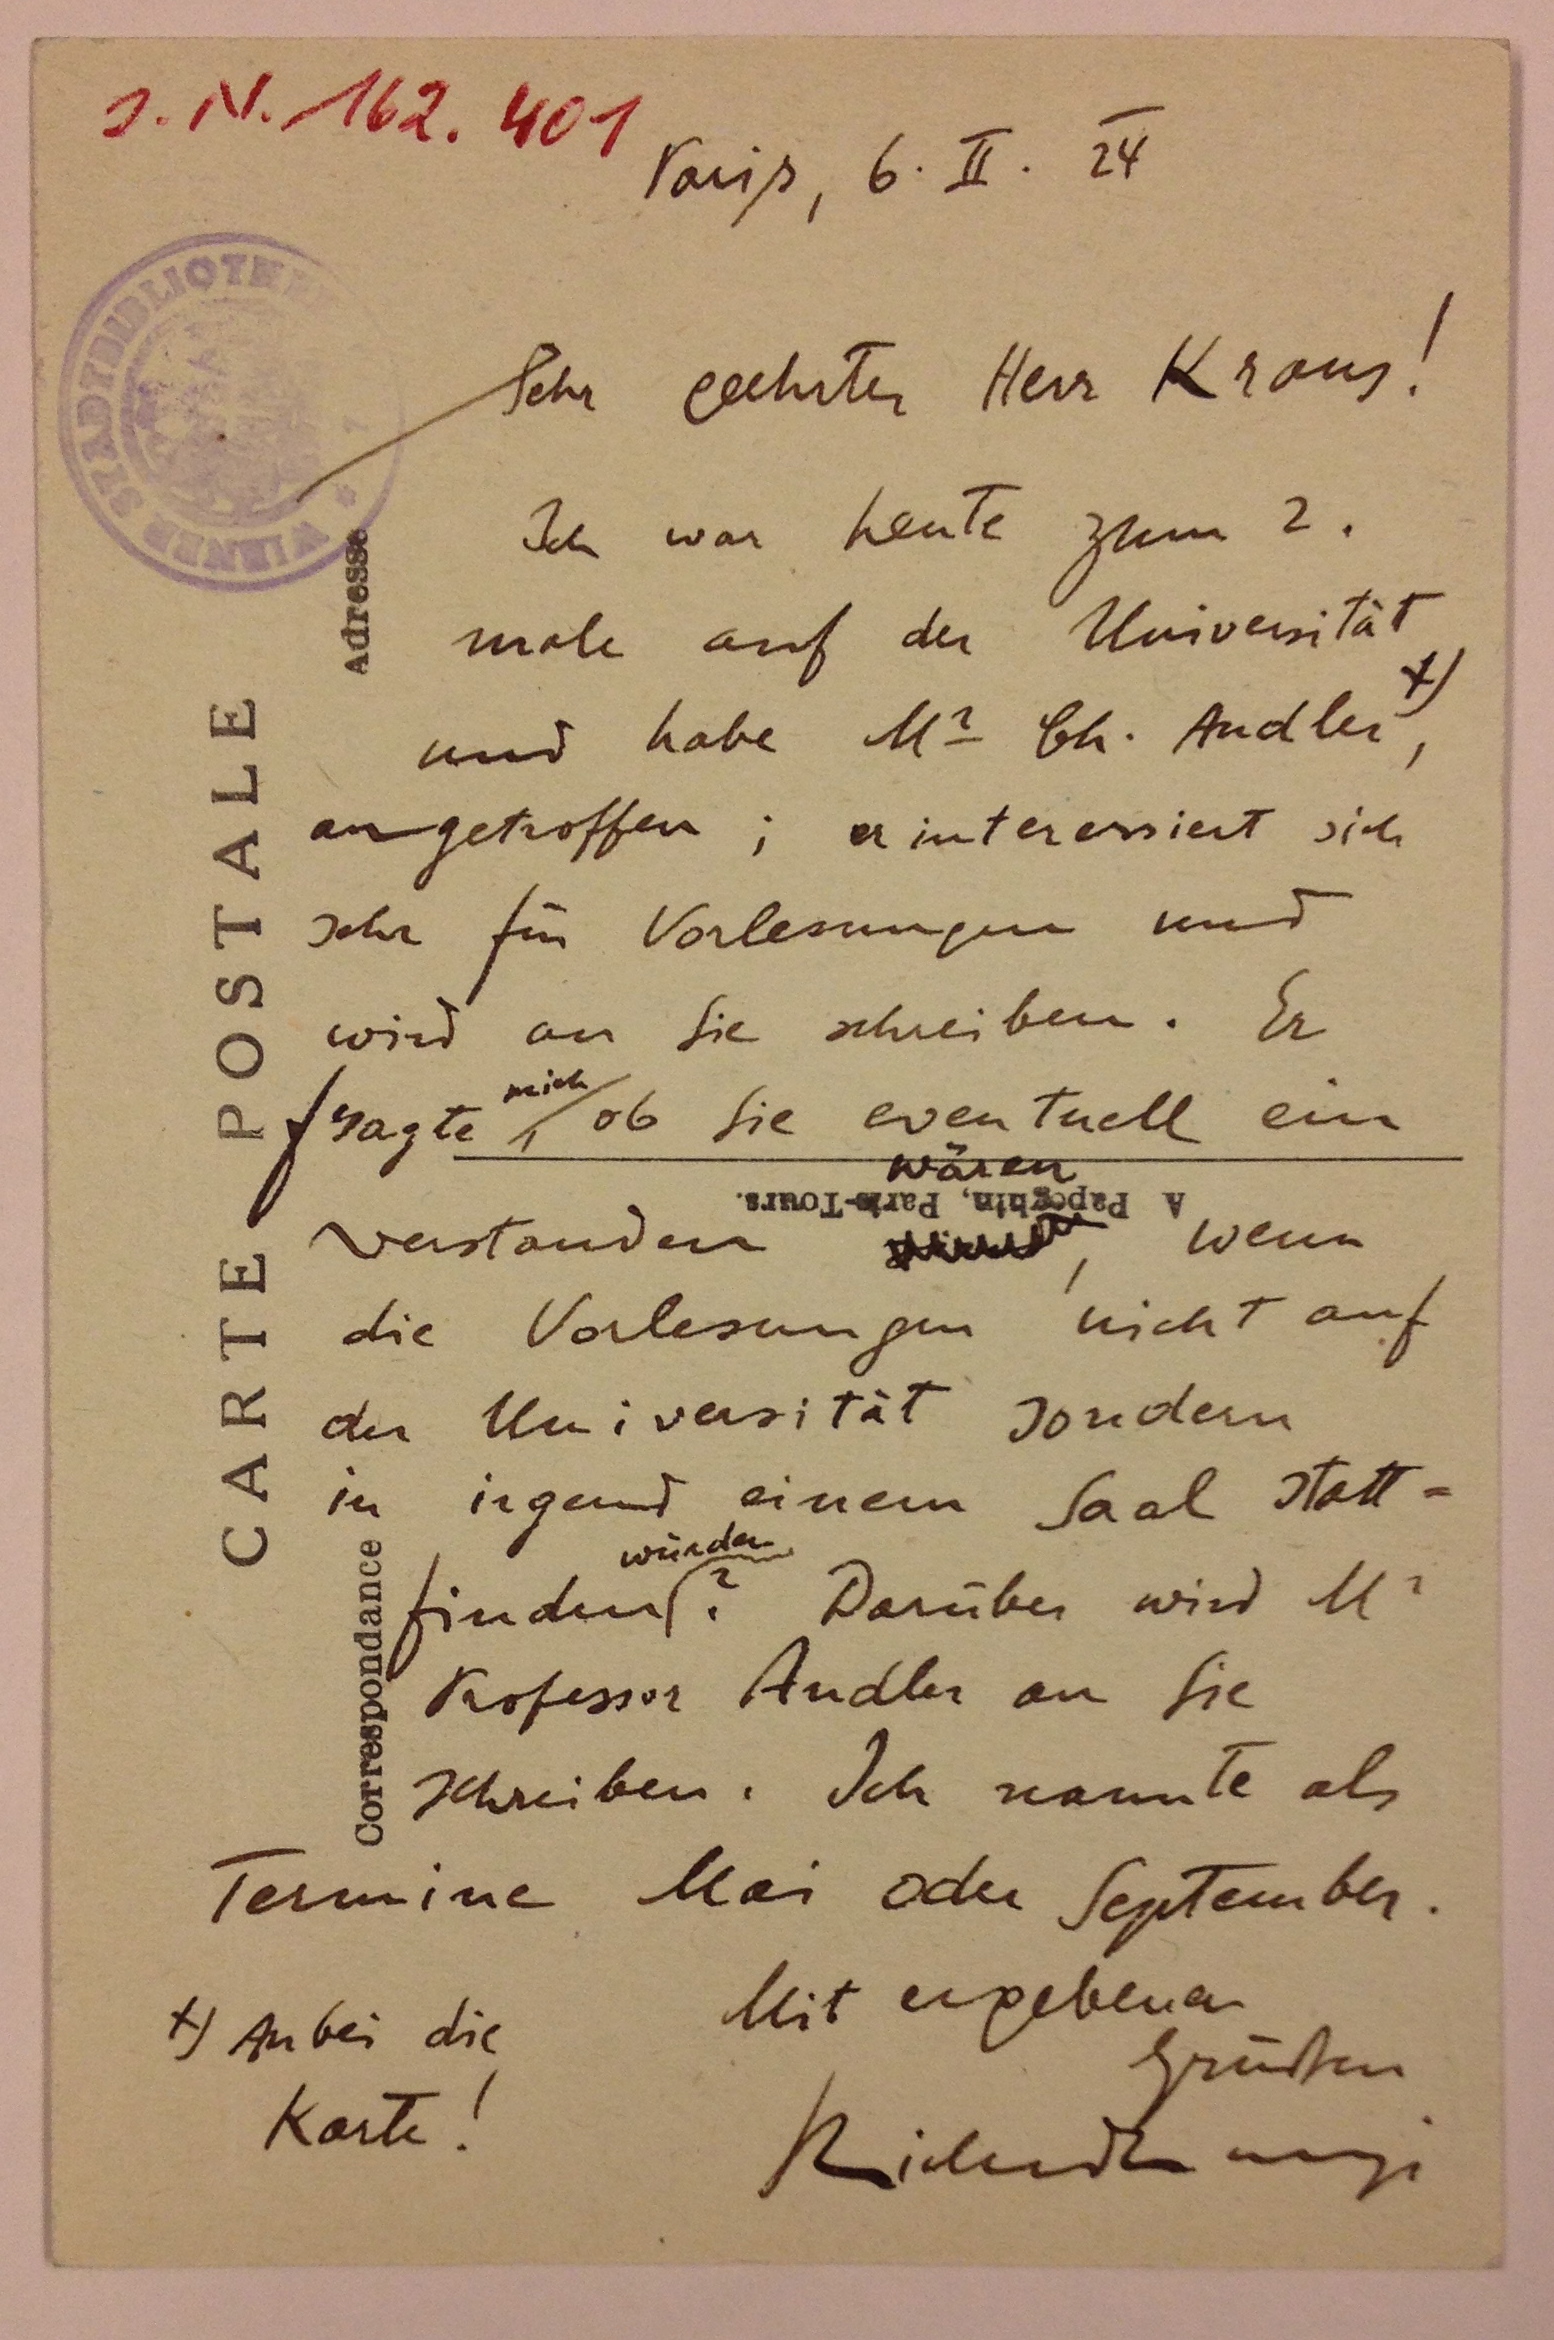 J. N. 162.401
Paris, 6. II. 24
WIENER STADTBIBLIOTHEK
Sehr geehrter Herr Kraus!
Adresse
Ich war heute zum 2.
male auf der Universität
und habe Mr Ch. Andler +),
angetroffen ; er interessiert sich
sehr für Vorlesungen und
wird an Sie schreiben. Er
fragte mich, ob Sie eventuell ein
CARTE POSTALE
A Papeghin, Paris-Tours.
verstanden wären, wenn
die Vorlesungen nicht auf
der Universität sondern
in irgend einem Saal statt=
finden würden? Darüber wird Mr
Correspondance
Professor Andler an Sie
schreiben. Ich nannte als
Termine Mai oder September.
Mit ergebenen
Grüßen
+) Anbei die
Karte!